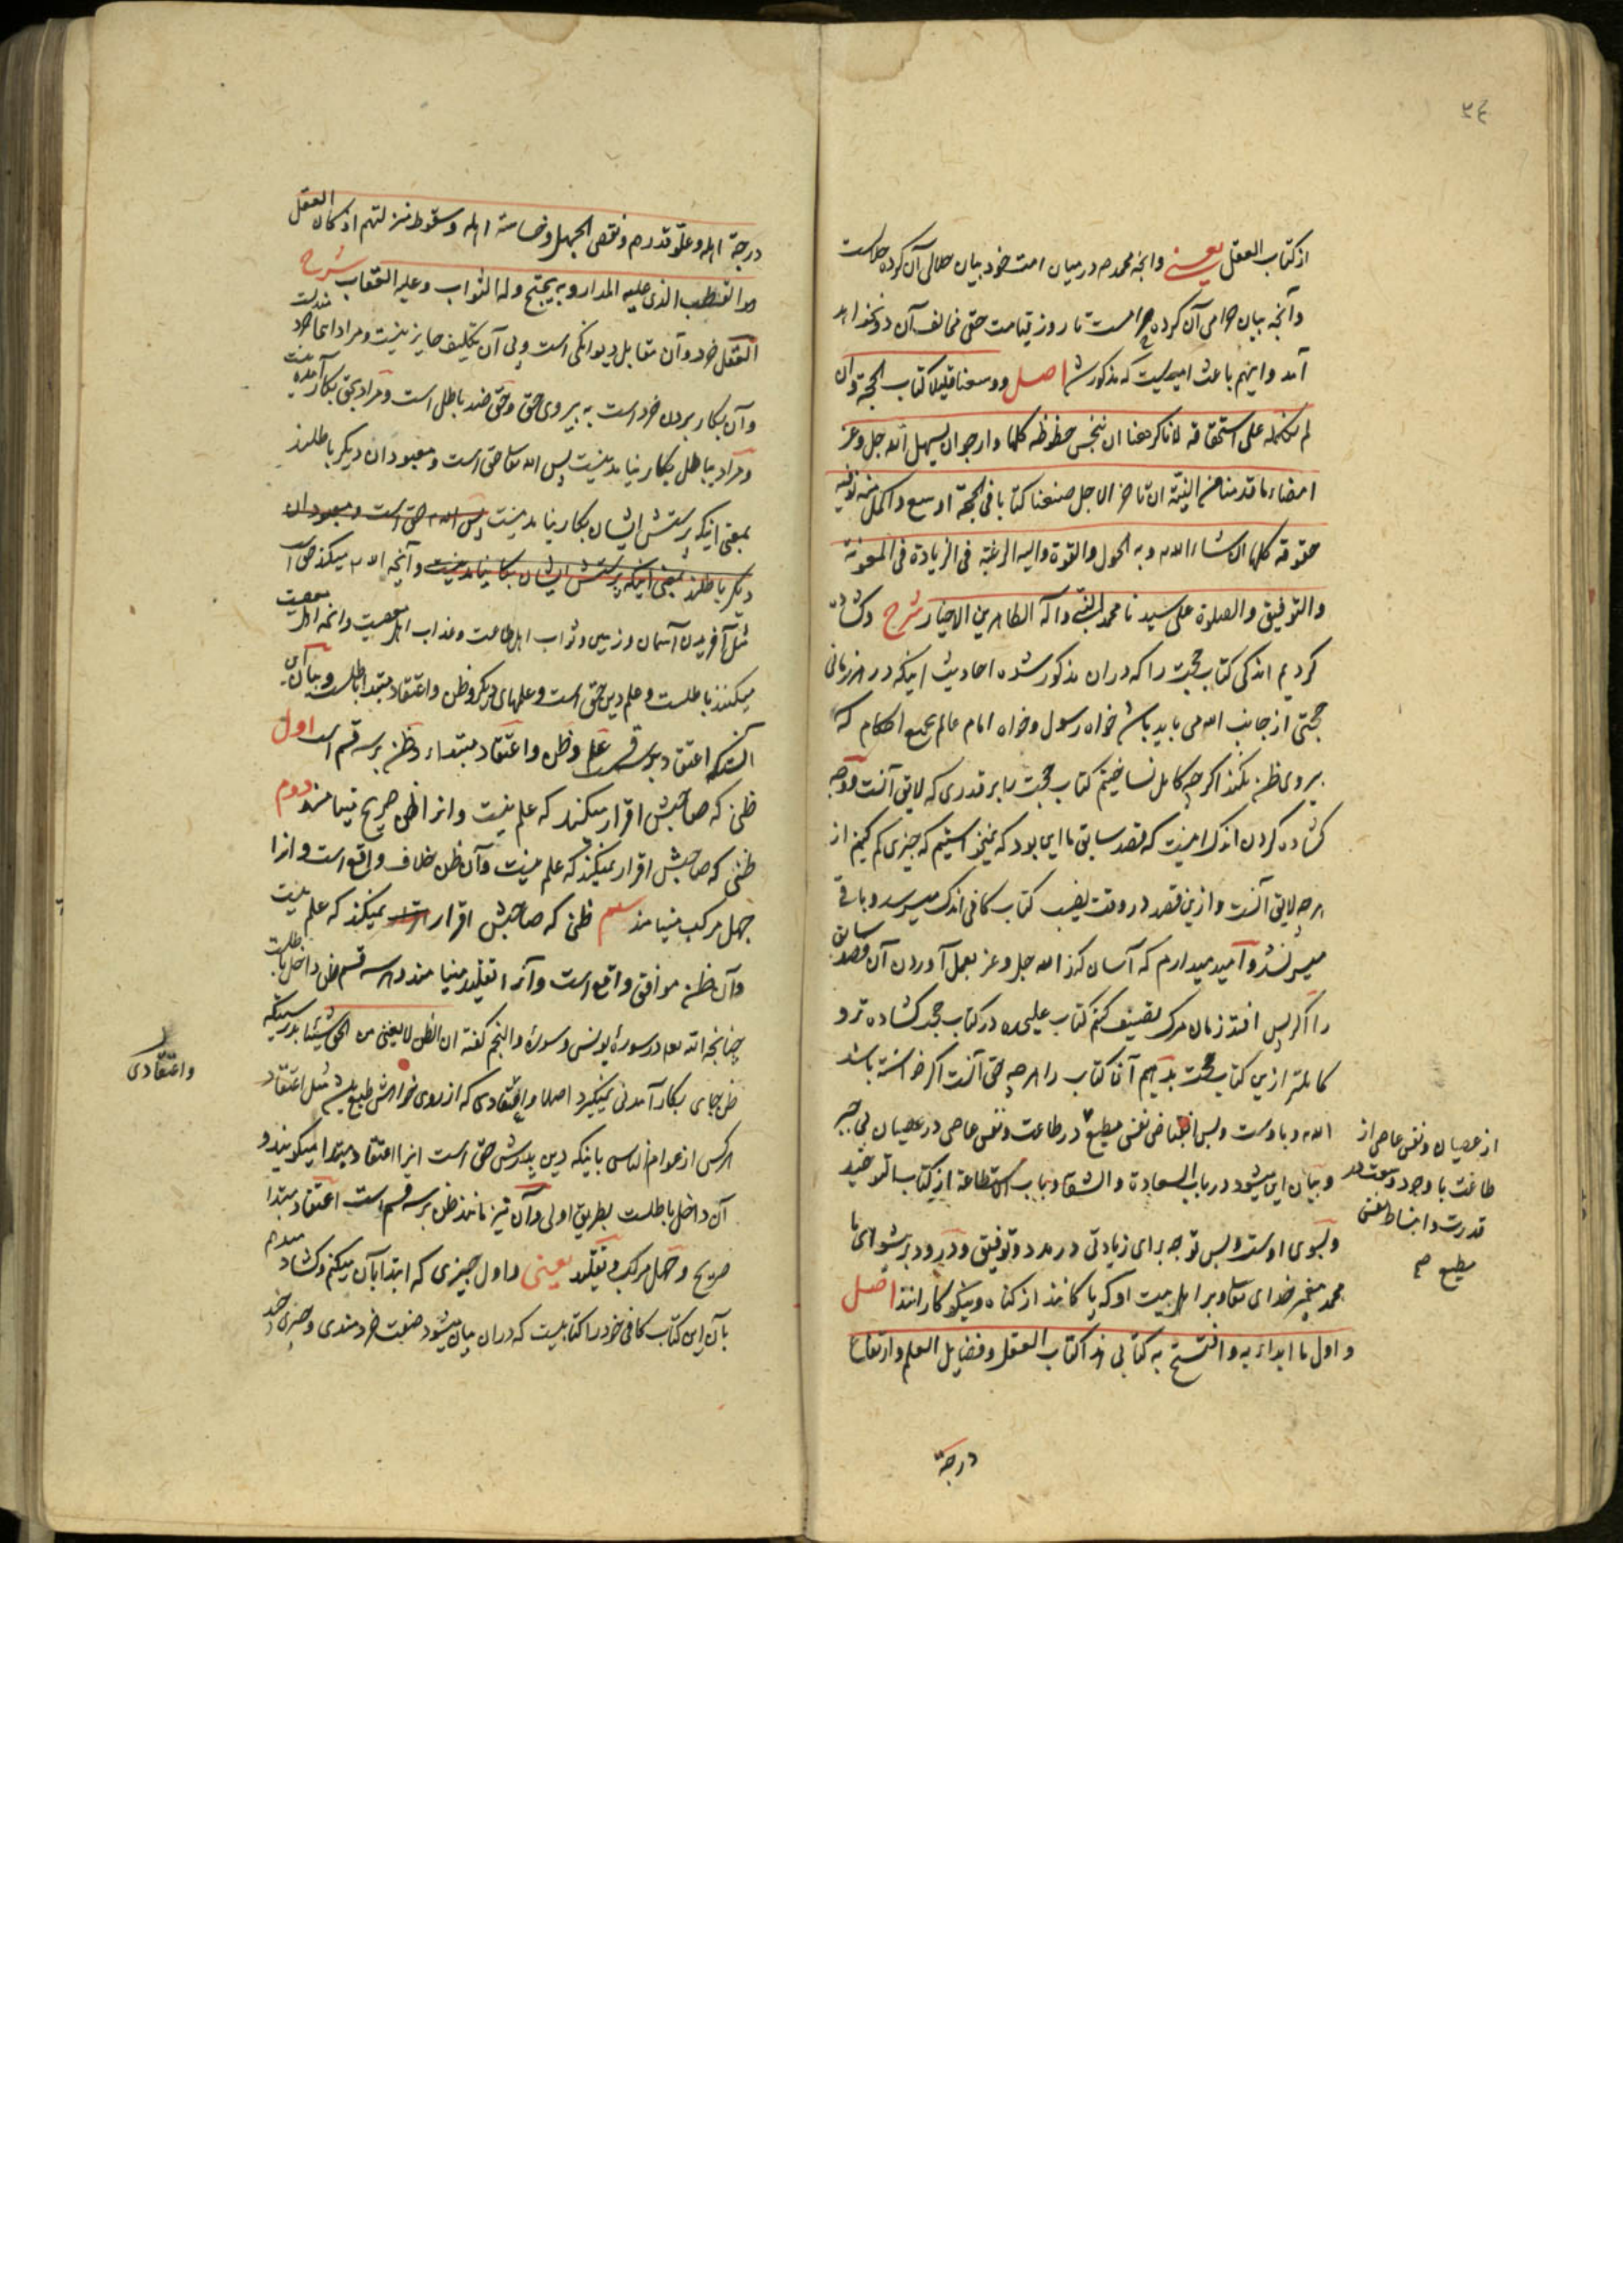 ٣٤
از کتاب العقل یعنی وانچه محمد ص در میان امت خود بیان حلالی آن کرده حلالست
وآنچه بیان حرامی آن کرده حرامست تا روز قیامت حقی مخالف آن در نخواهد
آمد و اینهم باعث امیدیست که مذکور شد اصل ووسعنا قلیلا کتاب الحجة وان
لم نکمله علی استحقاقه لانا کرهنا ان نبخس حظوظه کلها وارجو ان یسهل الله جل وعز
امضاء ما قدمنا من النیة ان تاخر الاجل صنعنا کتابا فی الحجة اوسع واکمل منه نوفیه
حقوقه کلها ان شاء الله وبه الحول والقوة والیه الرغبة فی الزیادة فی المعونة
والتوفیق والصلوة علی سیدنا محمد النبی وآله الطاهرین الاخیار شرح وکشاده
کردیم اندکی کتاب حجت را که دران مذکور شده احادیث اینکه در هر زمانی
حجتی از جانب الله می باید باشد خواه رسول وخواه امام عالم بجمیع احکام که
پیروی ظن نکند اگر چه کامل نساختیم کتاب حجت را بر قدری که لایق آنست ووجه
کشاده کردن اندک اینست که قصد سابق ما این بود که نمیخواستیم که چیزی کم کنیم از
هر چه لایق آنست وازین قصد در وقت تصنیف کتاب کافی اندک میسر شد وباقی
میسر نشد وامید میدارم که آسان کند الله جل وعز بعمل آوردن آن قصد سابق
را اگر پس افتد زمان مرک تصنیف کنم کتاب علیحده در کتاب حجت کشاده تر و
کاملتر ازین کتاب حجت بدهیم آن کتاب را هر چه حق آنست اگر خواسته باشد
الله وباوست وبس انقباض نفس مطیع در طاعت ونفس عاصی در عصیان بی جبر
از عصیان ونفس عاصی از
طاعت با وجود وسعت
قدرت وانبساط نفس
مطیع صح
وبیان این میشود در باب السعادة والشقاوة وباب الاستطاعة از کتاب التوحید
وبسوی اوست وبس توجه برای زیادتی در مدد وتوفیق ودرود بر پیشوای ما
محمد پیغمبر خدای تعالی وبر اهل بیت او که پاکانند از کناه ونیکوکارانند اصل
واول ما ابداء به وافتتح به کتابی هذا کتاب العقل وفضایل العلم وارتفاع
درجة
درجة اهله وعلو قدرهم ونقص الجهل وخساسة اهله وسقوط منزلتهم اذ کان العقل
هو القطب الذی علیه المدار وبه یحتج وله الثواب وعلیه العقاب شرح
العقل خرد وآن مقابل دیوانکی است وبی آن تکلیف جایز نیست ومراد اینجا خردمندیست
وآن بکار بردن خرد است به پیروی حق وحق ضد باطل است ومراد بحق بکار آمدنیست
ومراد بباطل بکار نیامدنیست پس الله تعالی حق است ومعبودان دیگر باطلند
بمعنی اینکه پرستش ایشان بکار نیامدنیست پس الله حق است ومعبودان
دیگر باطلند بمعنی اینکه پرستش ایشان بکار نیامدنیست وآنچه الله میکند حق است
مثل آفریدن آسمان وزمین وثواب اهل طاعت وعذاب اهل معصیت وانچه اهل معصیت
میکنند باطلست وعلم دین حق است وعلمهای دیگر وظن واعتقاد مبتدا باطلست وبیان این
آنست که اعتقاد بر سه قسم است علم وظن واعتقاد مبتداء وظن بر سه قسم است اول
ظنی که صاحبش اقرار میکند که علم نیست وانرا ظن صریح مینامند دوم
ظنی که صاحبش اقرار نمیکند که علم نیست وآن ظن خلاف واقع است وانرا
جهل مرکب مینامند سیم ظنی که صاحبش اقرار نمیکند که علم نیست
وآن ظن موافق واقع است وآنرا تقلید مینامند وهر سه قسم ظن داخل باطلست
چنانچه الله تعالی در سورهٔ یونس وسورهٔ والنجم کفته ان الظن لا یغنی من الحق شیئا بدرستیکه
ظن بجای بکار آمدنی نمیگیرد اصلا واعتقادی که از روی خواهش طبع باشد مثل اعتقاد
واعتقادی
هر کس از عوام الناس باینکه دین پدرش حق است انرا اعتقاد مبتدا میکویند و
آن داخل باطلست بطریق اولی وآن نیز مانند ظن بر سه قسم است اعتقاد مبتدا
صریح وجهل مرکب وتقلید یعنی واول چیزی که ابتدا بآن میکنم وکشاد میدهم
بآن این کتاب کافی خود را کتابیست که دران بیان میشود صفت خردمندی وچیزی چند